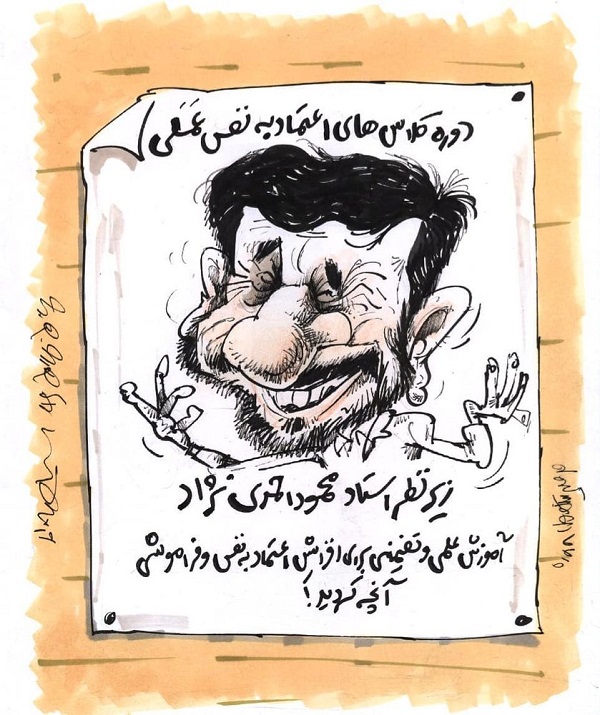 دوره کلاس های اعتماد به نفس عمقی
زیر نظر استاد محمود احمدی نژاد
آموزش علمی و تضمینی برای افزایش اعتماد به نفس و فراموشی
آنچه کردید!